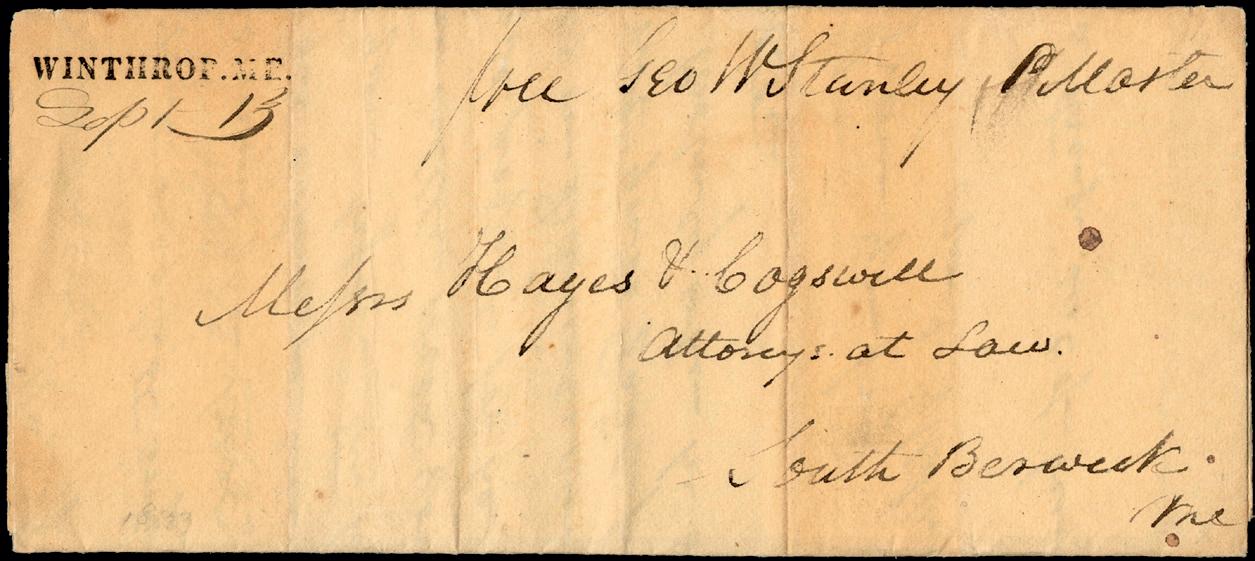 WINTHROP.ME.
Sept 13
free Geo W Stanley P Master
Messrs Hayes & Cogswell
Attorys: at Law.
South Berwick
Me